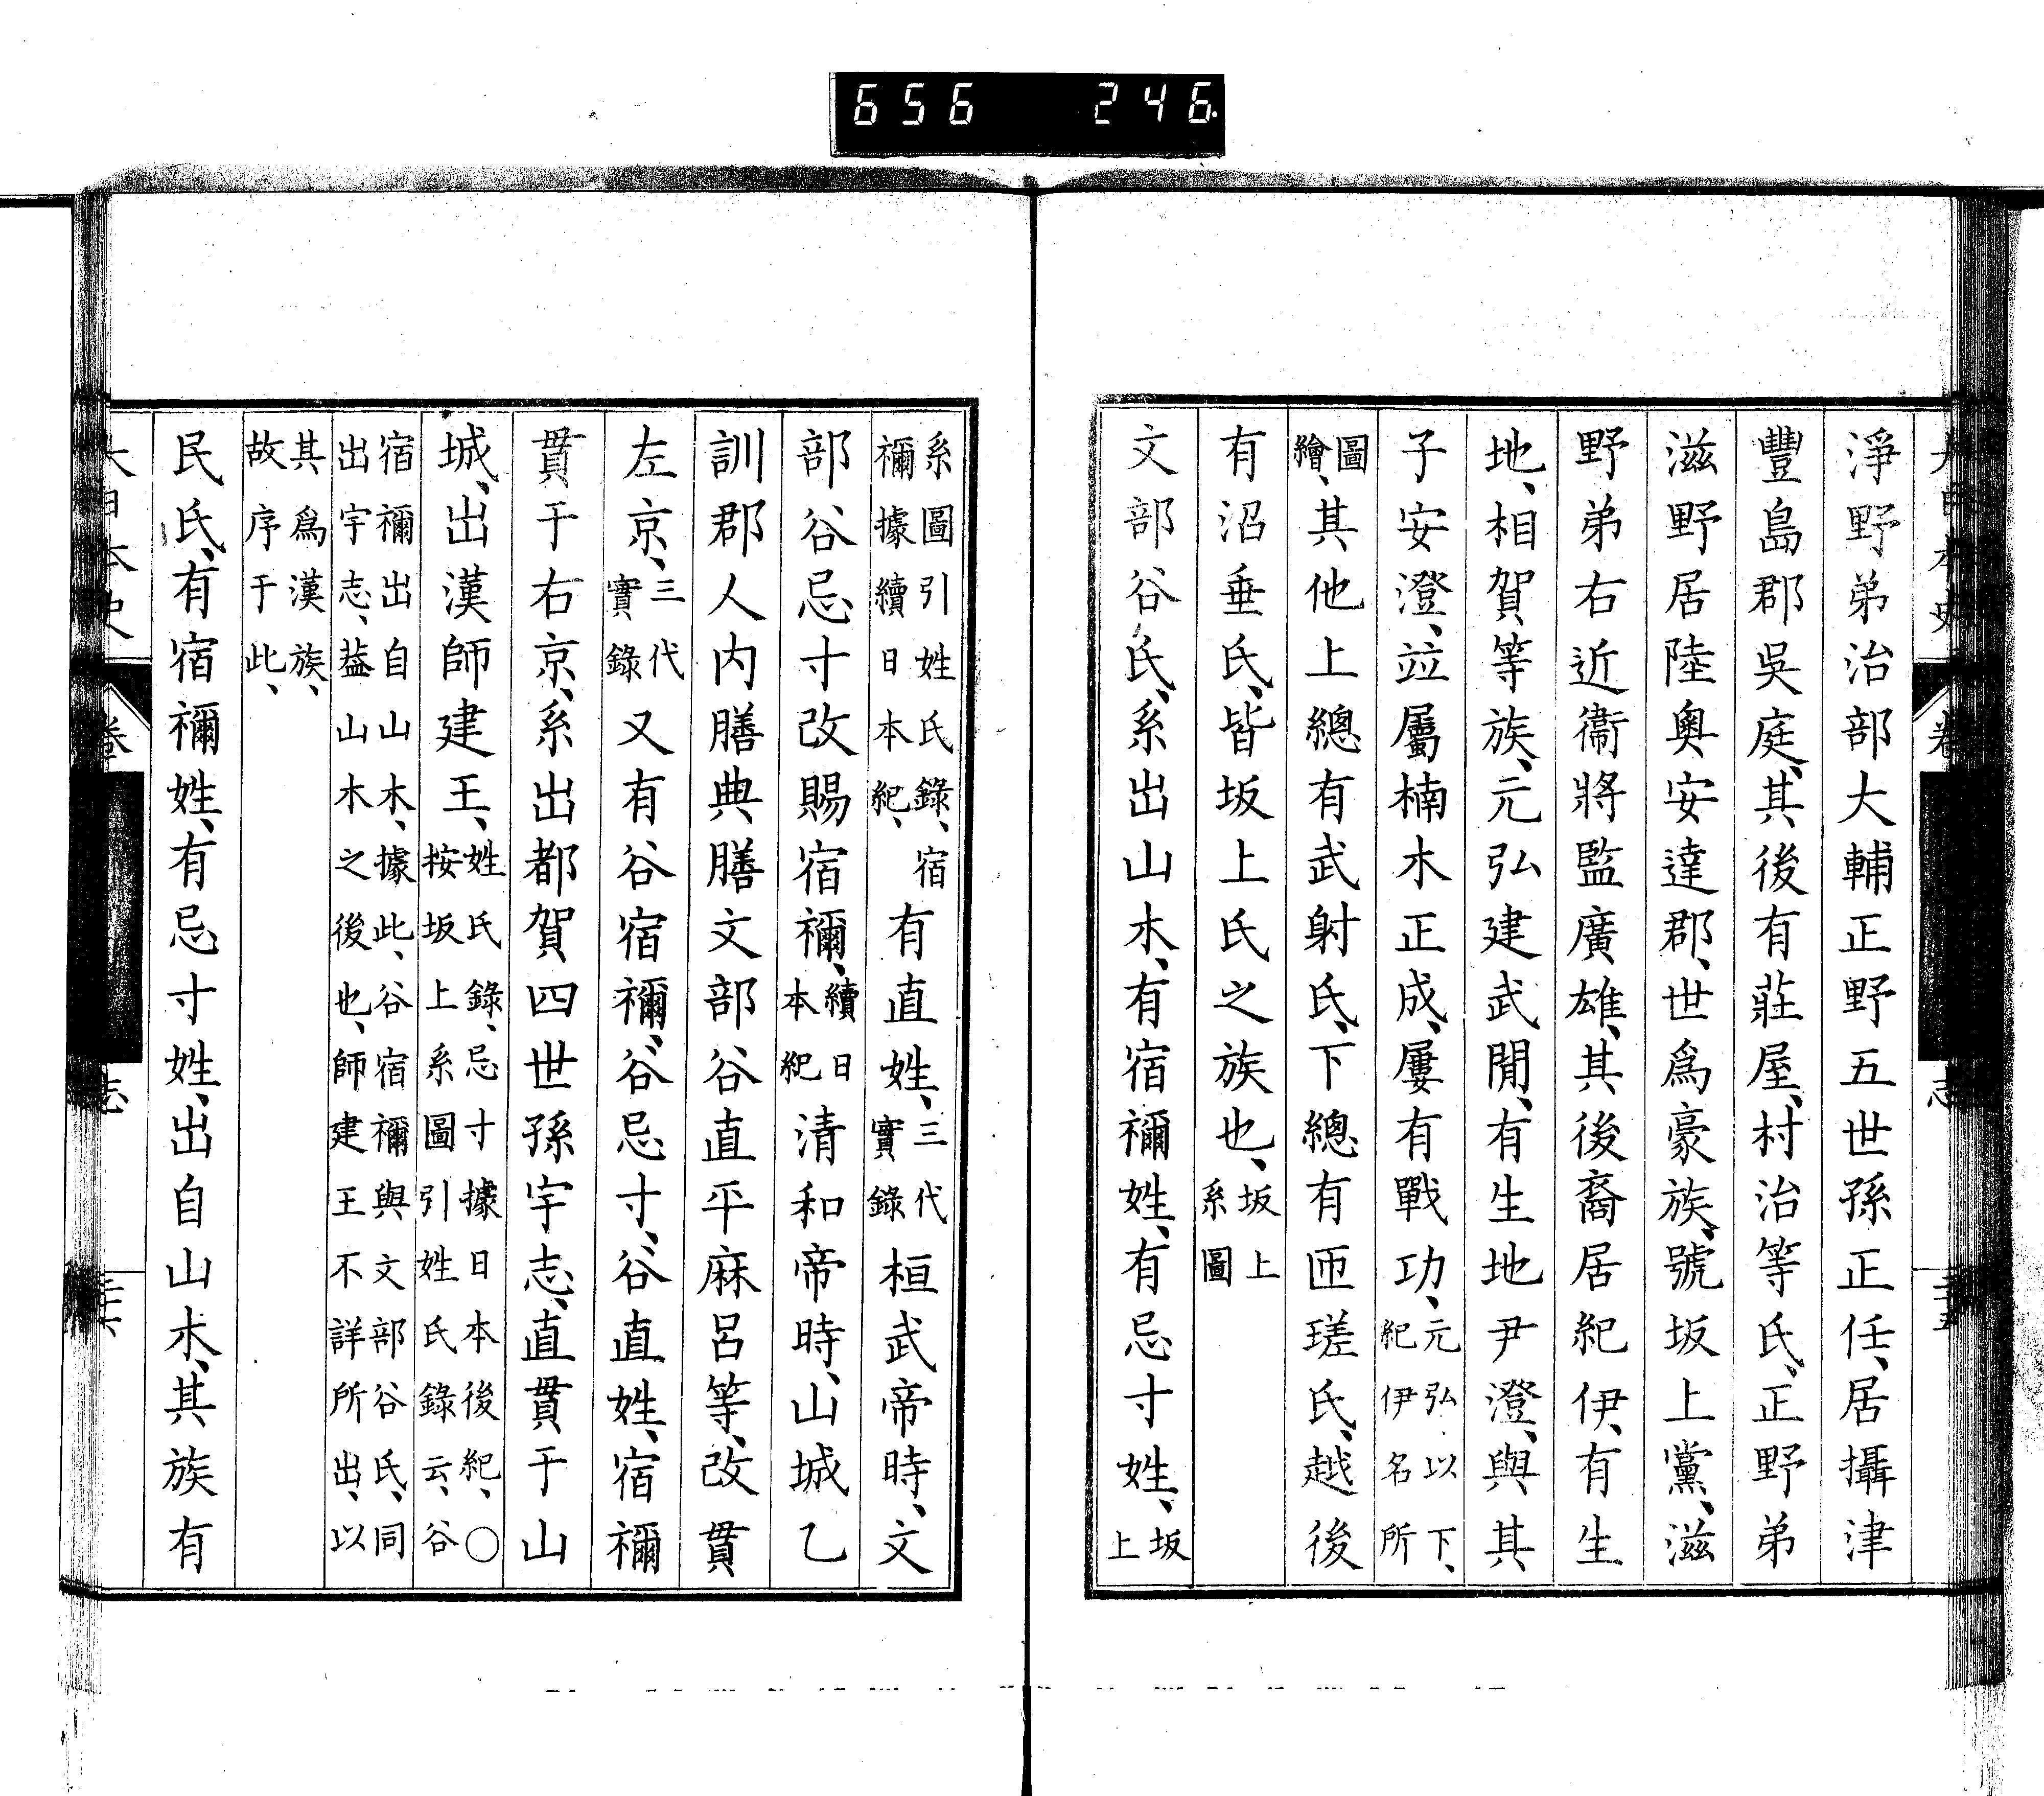 656 246
淨野弟治部大輔正野五世孫正任、居攝津
豐島郡吳庭、其後有莊屋、村治等氏、正野弟
滋野居陸奧安達郡、世爲豪族、號坂上黨、滋
野弟右近衞將監廣雄、其後裔居紀伊、有生
地、相賀等族、元弘建武閒、有生地尹澄、與其
子安澄、竝屬楠木正成、屢有戰功、元弘以下、
紀伊名所
圖
繪、其他上總有武射氏、下總有匝瑳氏、越後
有沼垂氏、皆坂上氏之族也、坂上
系圖
文部谷氏、系出山木、有宿禰姓、有忌寸姓、坂
上
系圖引姓氏錄、宿
禰據續日本紀、有直姓、三代
實錄桓武帝時、文
部谷忌寸改賜宿禰、續日
本紀清和帝時、山城乙
訓郡人內膳典膳文部谷直平麻呂等、改貫
左京、三代
實錄又有谷宿禰、谷忌寸、谷直姓、宿禰
貫于右京、系出都賀四世孫宇志、直貫于山
城、出漢師建王、姓氏錄、忌寸據日本後紀、〇
按坂上系圖引姓氏錄云、谷
宿禰出自山木、據此、谷宿禰與文部谷氏、同
出宇志、葢山木之後也、師建王不詳所出、以
其爲漢族、
故序于此、
民氏、有宿禰姓、有忌寸姓、出自山木、其族有
大日本史
卷
志